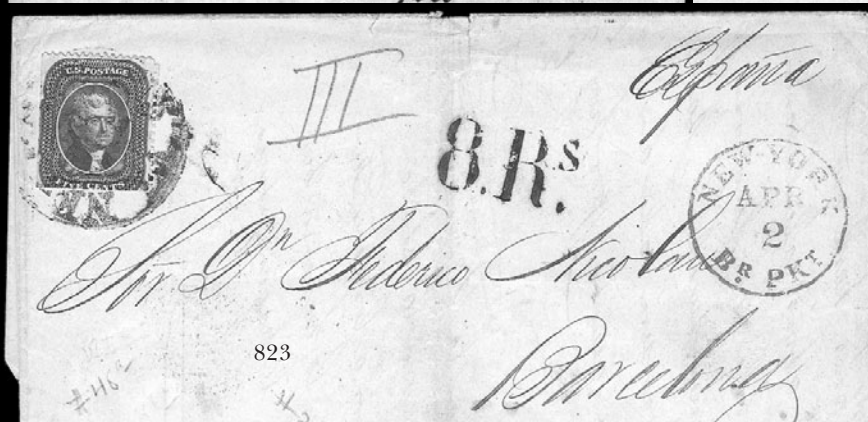 U.S. POSTAGE
III
España
8.Rs
NEW-YORK
APR
2
BR PKT
Sōr Dn Federico Nicolau
823
Barcelona